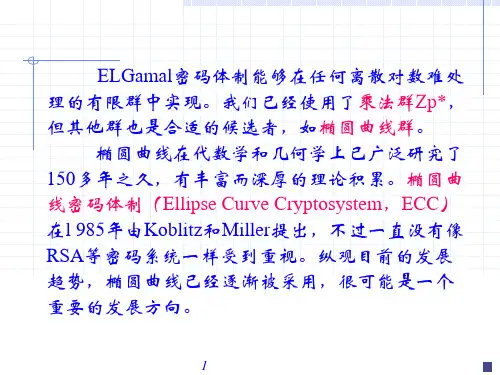 ELGamal密码体制能够在任何离散对数难处
理的有限群中实现。我们已经使用了乘法群Zp*，
但其他群也是合适的候选者，如椭圆曲线群。
椭圆曲线在代数学和几何学上已广泛研究了
150多年之久，有丰富而深厚的理论积累。椭圆曲
线密码体制（Ellipse Curve Cryptosystem，ECC）
在1985年由Koblitz和Miller提出，不过一直没有像
RSA等密码系统一样受到重视。纵观目前的发展
趋势，椭圆曲线已经逐渐被采用，很可能是一个
重要的发展方向。
1